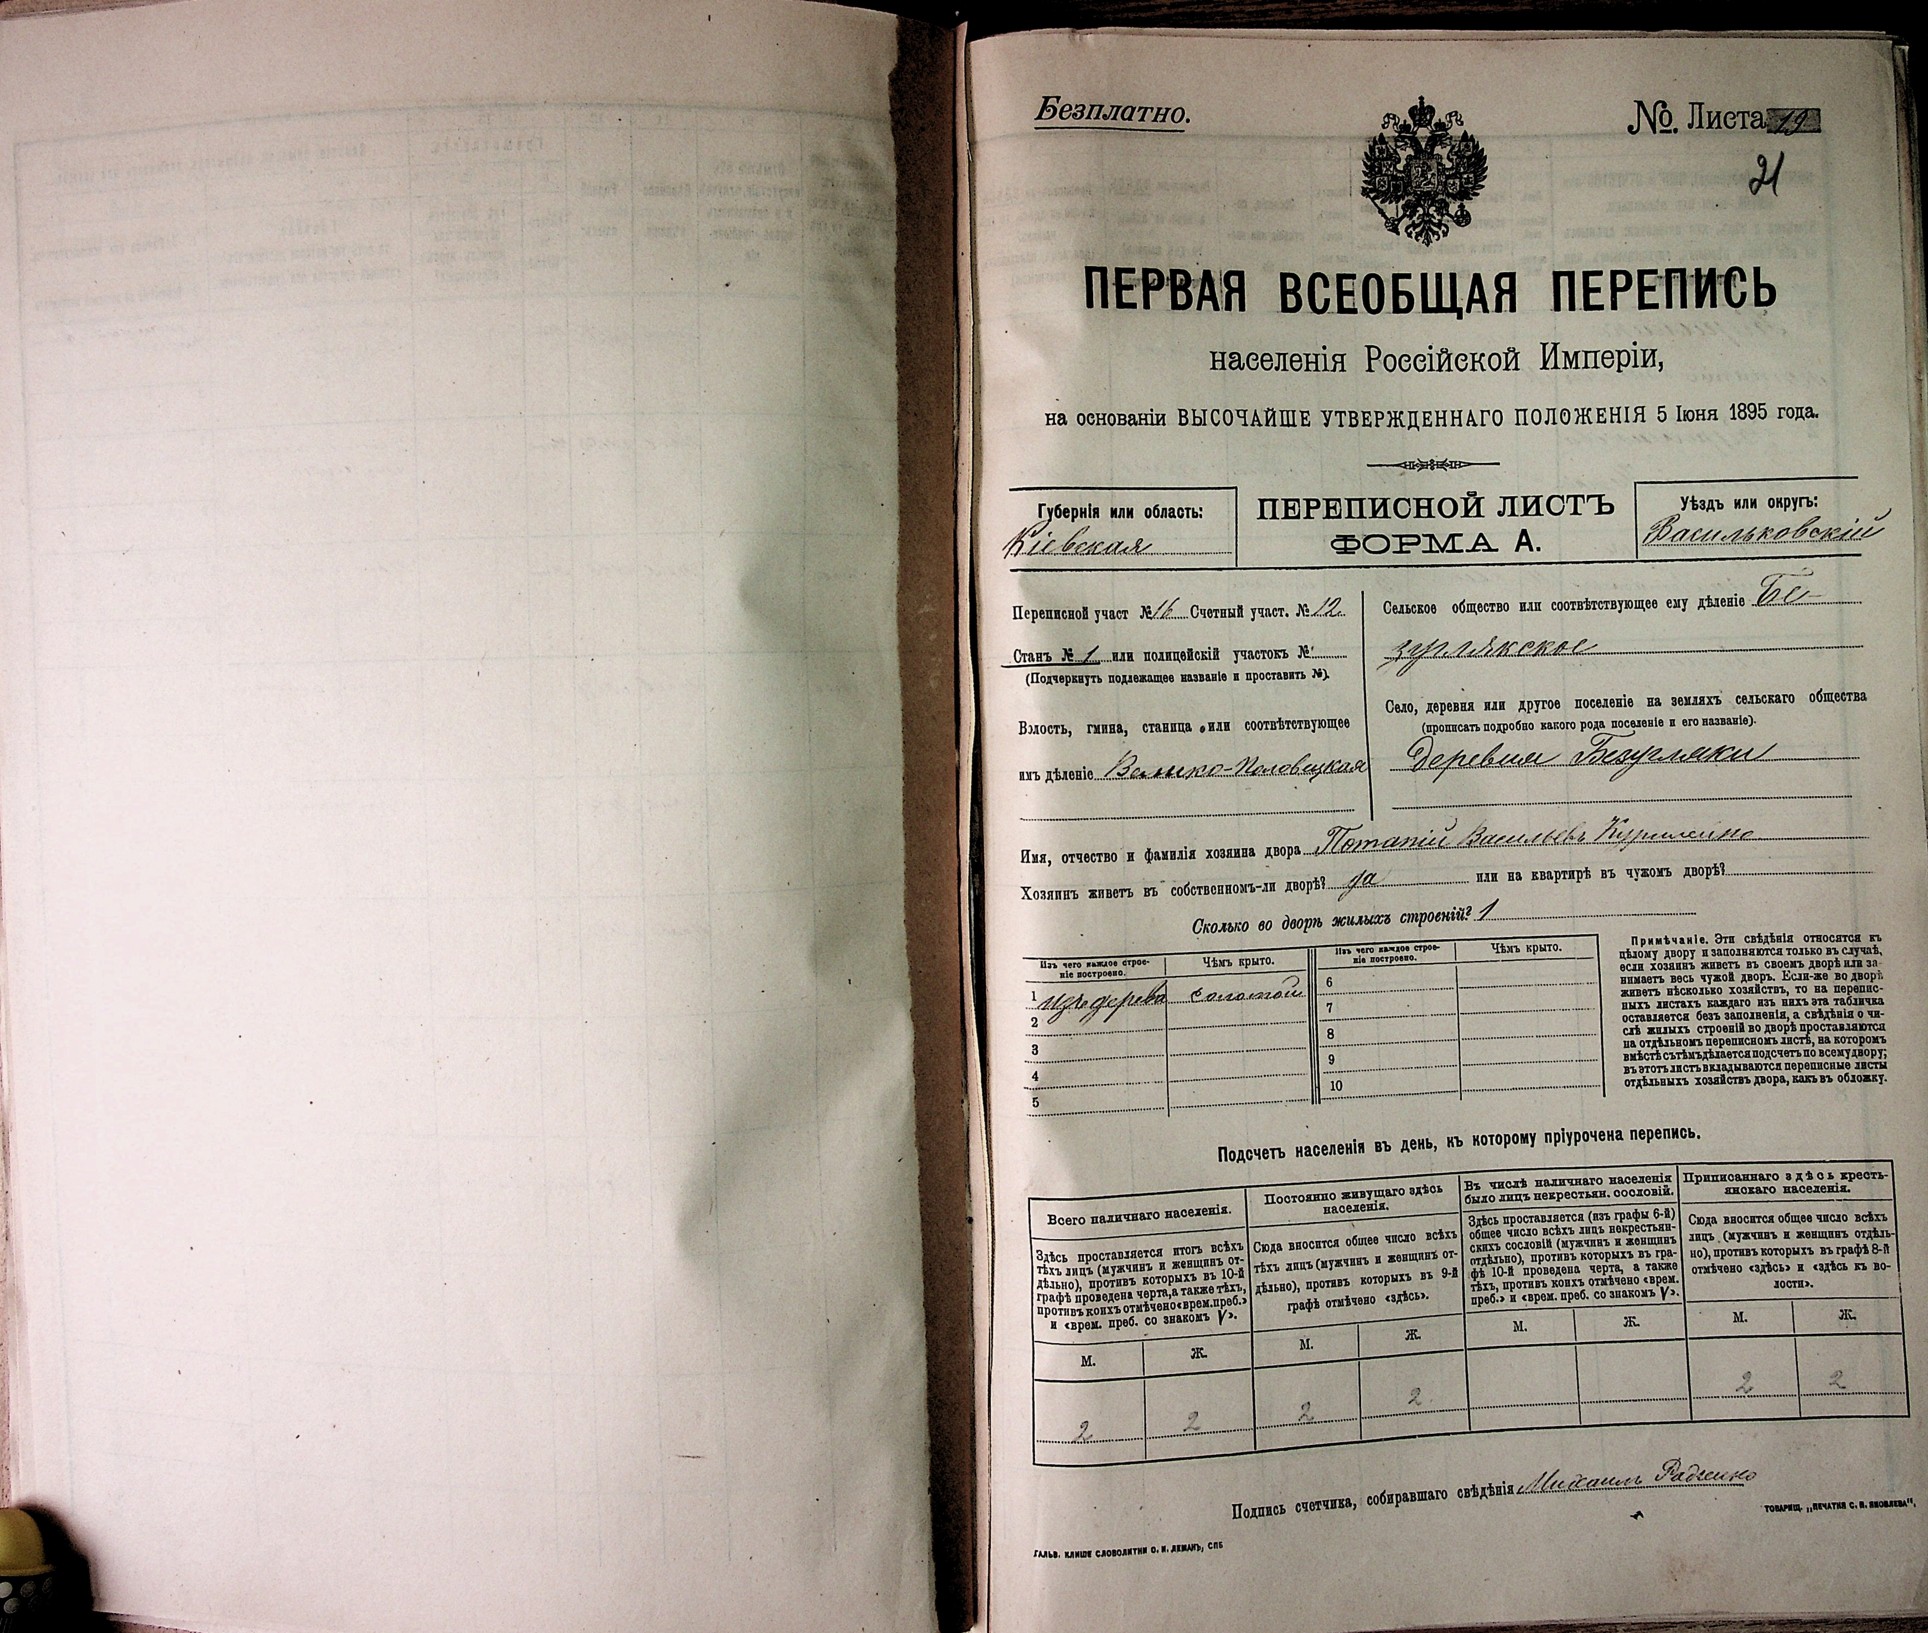 Безплатно.
№ Листа 19
21
ПЕРВАЯ ВСЕОБЩАЯ ПЕРЕПИСЬ
населенія Россійской Имперіи,
на основаніи ВЫСОЧАЙШЕ УТВЕРЖДЕННАГО ПОЛОЖЕНІЯ 5 Іюня 1895 года.
Губернія или область:
Кіевская
ПЕРЕПИСНОЙ ЛИСТЪ
ФОРМА А.
Уѣздъ или округъ:
Васильковскій
Переписной участ №16 Счетный участ. №12
Станъ № 1 или полицейскій участокъ №
(Подчеркнуть подлежащее названіе и проставить №).
Волость, гмина, станица или соотвѣтствующее
имъ дѣленіе Велико-Половецкая
Сельское общество или соотвѣтствующее ему дѣленіе Бе-
зуглякское
Село, деревня или другое поселеніе на земляхъ сельскаго общества
(прописать подробно какого рода поселеніе и его названіе).
Деревня Безугляки
Имя, отчество и фамилія хозяина двора Потапій Васильевъ
Хозяинъ живетъ въ собственномъ-ли дворѣ? да или на квартирѣ въ чужомъ дворѣ?
Сколько во дворѣ жилыхъ строеній? 1
Изъ чего каждое строе-
ніе построено.
Чѣмъ крыто.
1 изъ дерева соломой
2
3
4
5
Изъ чего каждое строе-
ніе построено.
Чѣмъ крыто.
6
7
8
9
10
Примѣчаніе. Эти свѣдѣнія относятся къ
цѣлому двору и заполняются только въ случаѣ,
если хозяинъ живетъ въ своемъ дворѣ или за-
нимаетъ весь чужой дворъ. Если-же во дворѣ
живетъ нѣсколько хозяйствъ, то на перепис-
ныхъ листахъ каждаго изъ нихъ эта табличка
оставляется безъ заполненія, а свѣдѣнія о чи-
слѣ жилыхъ строеній во дворѣ проставляются
на отдѣльномъ переписномъ листѣ, на которомъ
вмѣстѣ съ тѣмъ дѣлается подсчетъ по всему двору;
въ этотъ листъ вкладываются переписные листы
отдѣльныхъ хозяйствъ двора, какъ въ обложку.
Подсчетъ населенія въ день, къ которому пріурочена перепись.
Всего наличнаго населенія.
Здѣсь проставляется итогъ всѣхъ
тѣхъ лицъ (мужчинъ и женщинъ от-
дѣльно), противъ которыхъ въ 10-й
графѣ проведена черта, а также тѣхъ,
противъ коихъ отмѣчено «врем. преб.»
и «врем. преб. со знакомъ V».
М. Ж.
2 2
Постоянно живущаго здѣсь
населенія.
Сюда вносится общее число всѣхъ
тѣхъ лицъ (мужчинъ и женщинъ от-
дѣльно), противъ которыхъ въ 9-й
графѣ отмѣчено «здѣсь».
М. Ж.
2 2
Въ числѣ наличнаго населенія
было лицъ некрестьян. сословій.
Здѣсь проставляется (изъ графы 6-й)
общее число всѣхъ лицъ некрестьян-
скихъ сословій (мужчинъ и женщинъ
отдѣльно), противъ которыхъ въ гра-
фѣ 10-й проведена черта, а также
тѣхъ, противъ коихъ отмѣчено «врем.
преб.» и «врем. преб. со знакомъ V».
М. Ж.
Приписаннаго здѣсь кресть-
янскаго населенія.
Сюда вносится общее число всѣхъ
лицъ (мужчинъ и женщинъ отдѣль-
но), противъ которыхъ въ графѣ 8-й
отмѣчено «здѣсь» и «здѣсь къ во-
лости».
М. Ж.
2 2
Подпись счетчика, собиравшаго свѣдѣнія Михаилъ
ГАЛЬВ. КЛИШЕ СЛОВОЛИТНИ О. И. ЛЕМАНЪ, СПБ
ТОВАРИЩ. „ПЕЧАТНЯ С. П. ЯКОВЛЕВА".